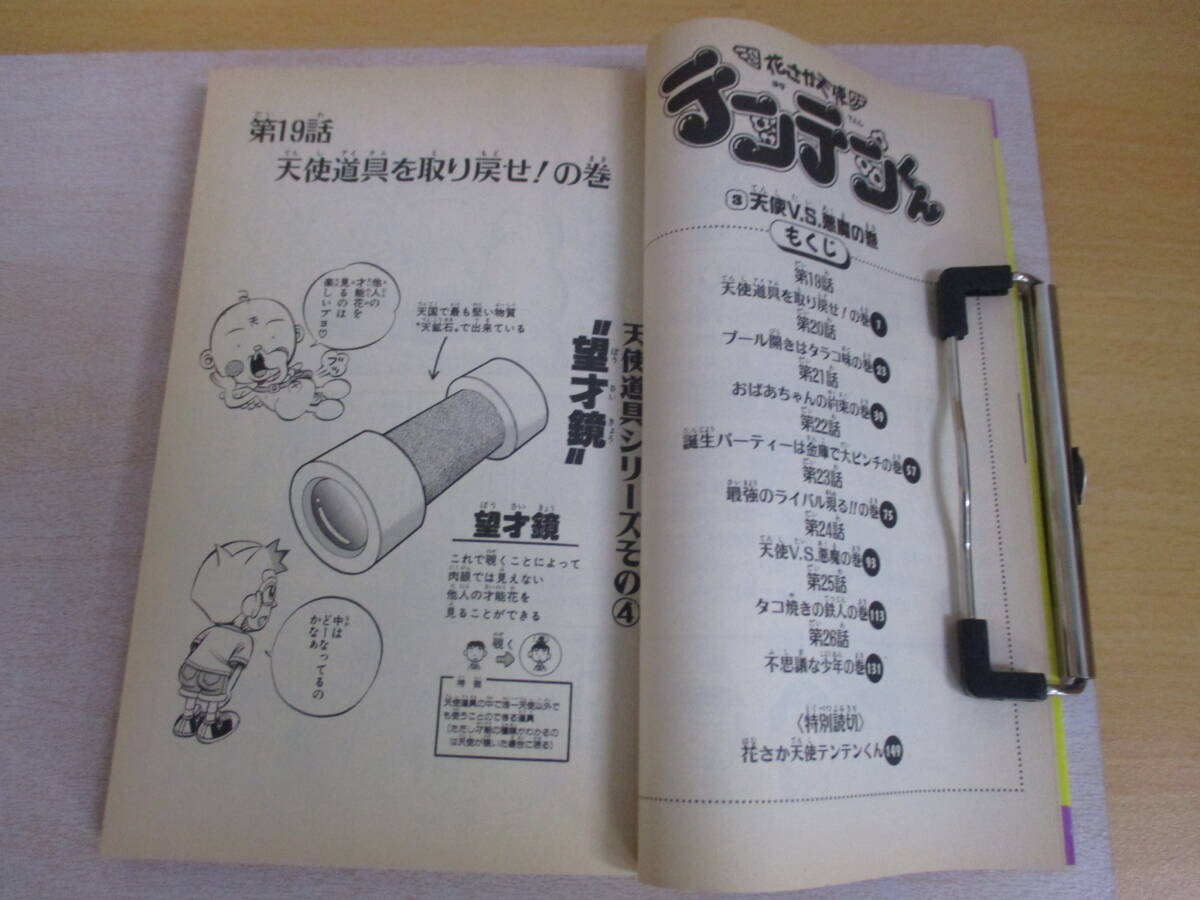 花さか天使
テンテンくん
③天使V.S.悪魔の巻
もくじ
第19話
天使道具を取り戻せ!の巻 7
第20話
プール開きはタラコ味の巻 23
第21話
おばあちゃんの約束の巻 39
第22話
誕生パーティーは金庫で大ピンチの巻 57
第23話
最強のライバル現る!!の巻 75
第24話
天使V.S.悪魔の巻 93
第25話
タコ焼きの鉄人の巻 113
第26話
不思議な少年の巻 131
〈特別読切〉
花さか天使テンテンくん 149
第19話
天使道具を取り戻せ!の巻
天使道具シリーズその④
"望才鏡"
天国で最も堅い物質
"天鉱石"で出来ている
他人の
才能花を
見るのは
楽しいプョ♡
プッ
天
望才鏡
これで覗くことによって
肉眼では見えない
他人の才能花を
見ることができる
覗く
特徴
天使道具の中で唯一天使以外で
も使うことのできる道具
(ただし才能の種類がわかるの
は天使が覗いた場合に限る)
中は
どーなってるの
かなぁ